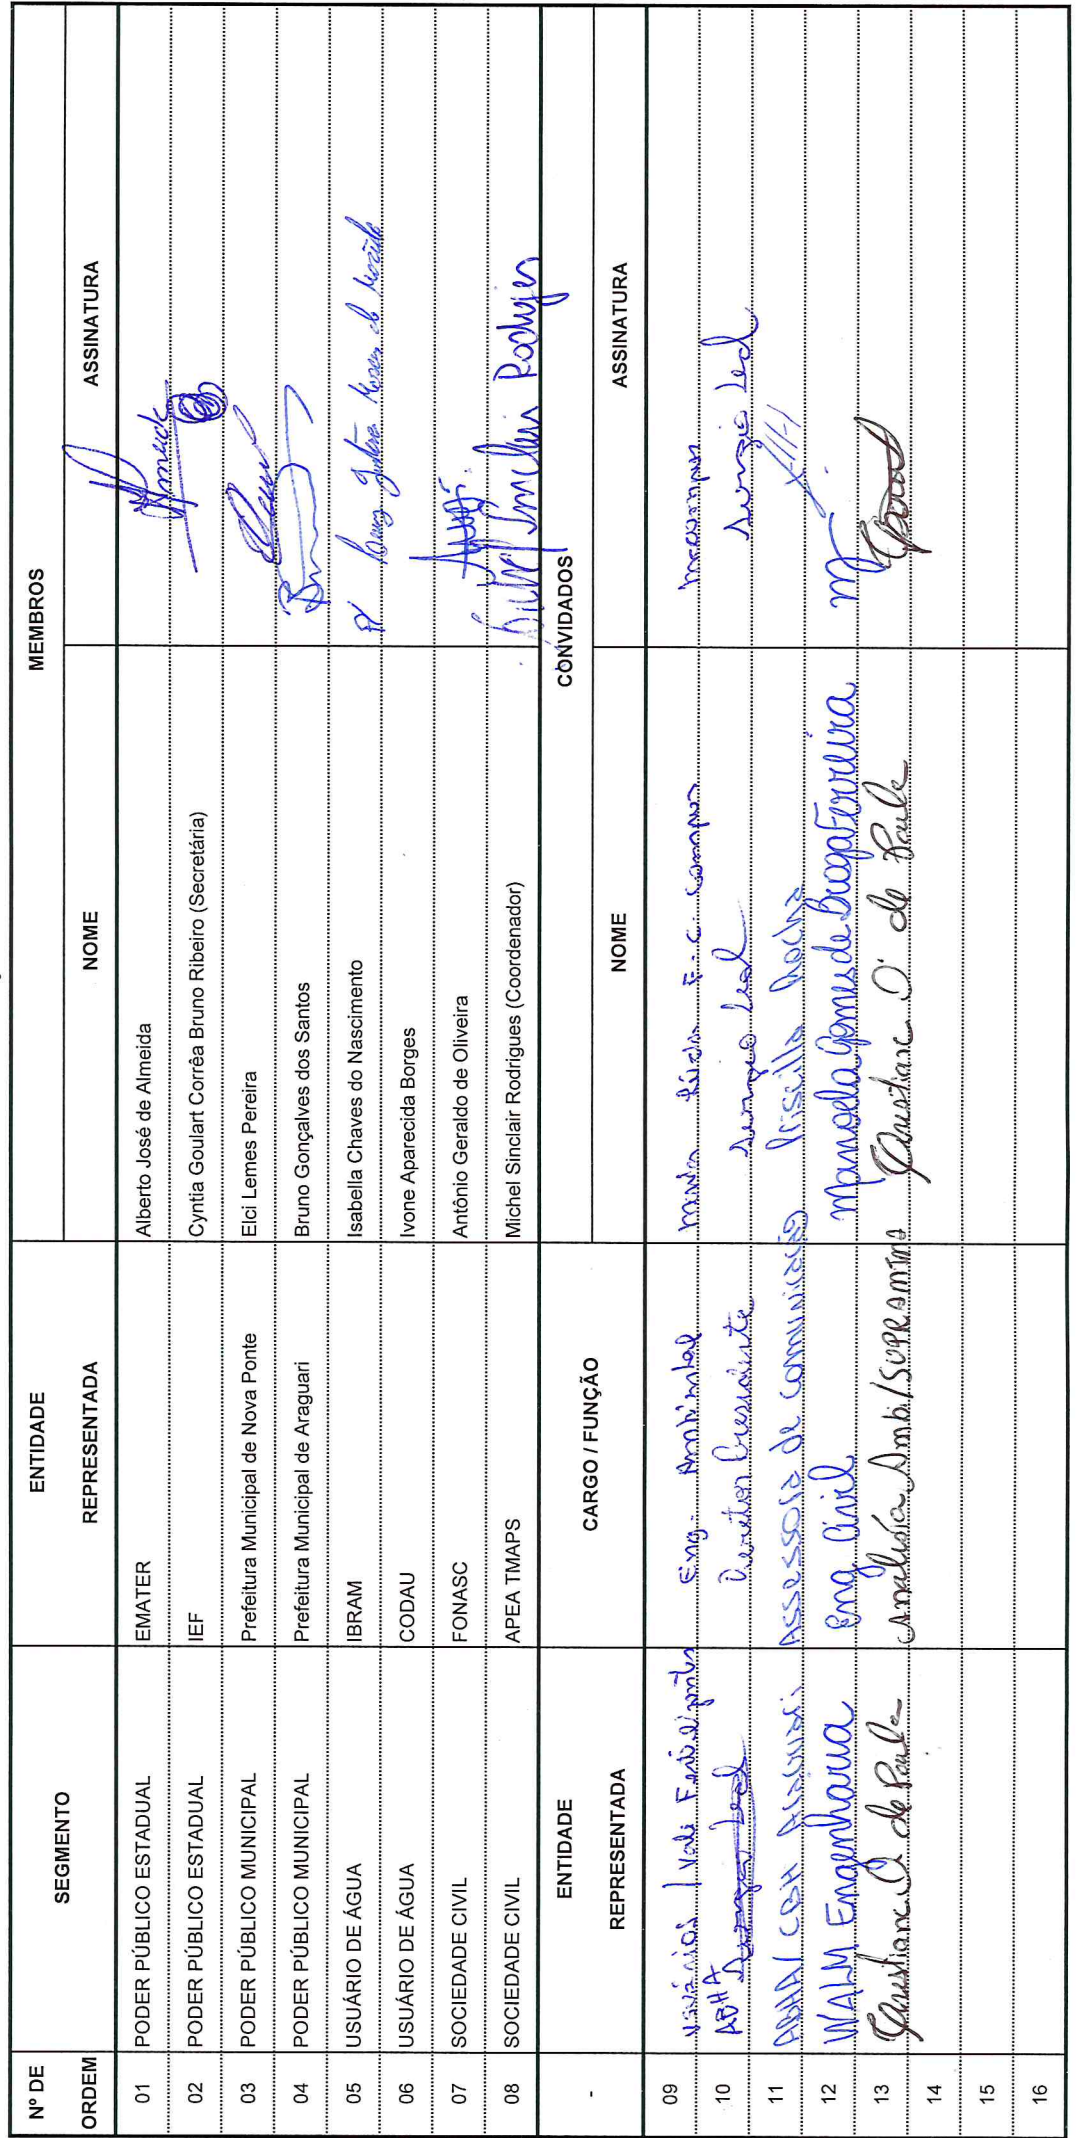 Nº DE ORDEM SEGMENTO ENTIDADE REPRESENTADA MEMBROS
NOME ASSINATURA
01 PODER PÚBLICO ESTADUAL EMATER Alberto José de Almeida Almeida
02 PODER PÚBLICO ESTADUAL IEF Cyntia Goulart Corrêa Bruno Ribeiro (Secretária)
03 PODER PÚBLICO MUNICIPAL Prefeitura Municipal de Nova Ponte Elci Lemes Pereira
04 PODER PÚBLICO MUNICIPAL Prefeitura Municipal de Araguari Bruno Gonçalves dos Santos
05 USUÁRIO DE ÁGUA IBRAM Isabella Chaves do Nascimento
06 USUÁRIO DE ÁGUA CODAU Ivone Aparecida Borges
07 SOCIEDADE CIVIL FONASC Antônio Geraldo de Oliveira
08 SOCIEDADE CIVIL APEA TMAPS Michel Sinclair Rodrigues (Coordenador) Michel Sinclair Rodrigues
- ENTIDADE REPRESENTADA CARGO / FUNÇÃO CONVIDADOS
NOME ASSINATURA
09 Usuários / Vale Fertilizantes Eng. Ambiental F. C. Campos
10 ABHA Sergio Leal Diretor Presidente Sergio Leal Sergio Leal
11 ABHA / CBH Araguari Assessora de Comunicação Priscilla Rocha
12 WALM Engenharia Eng Civil Manoela Gomes de Braga Ferreira
13 Cristiane O de Paula Analista Amb. / SUPRAM TMA Cristiane O. de Paula
14
15
16